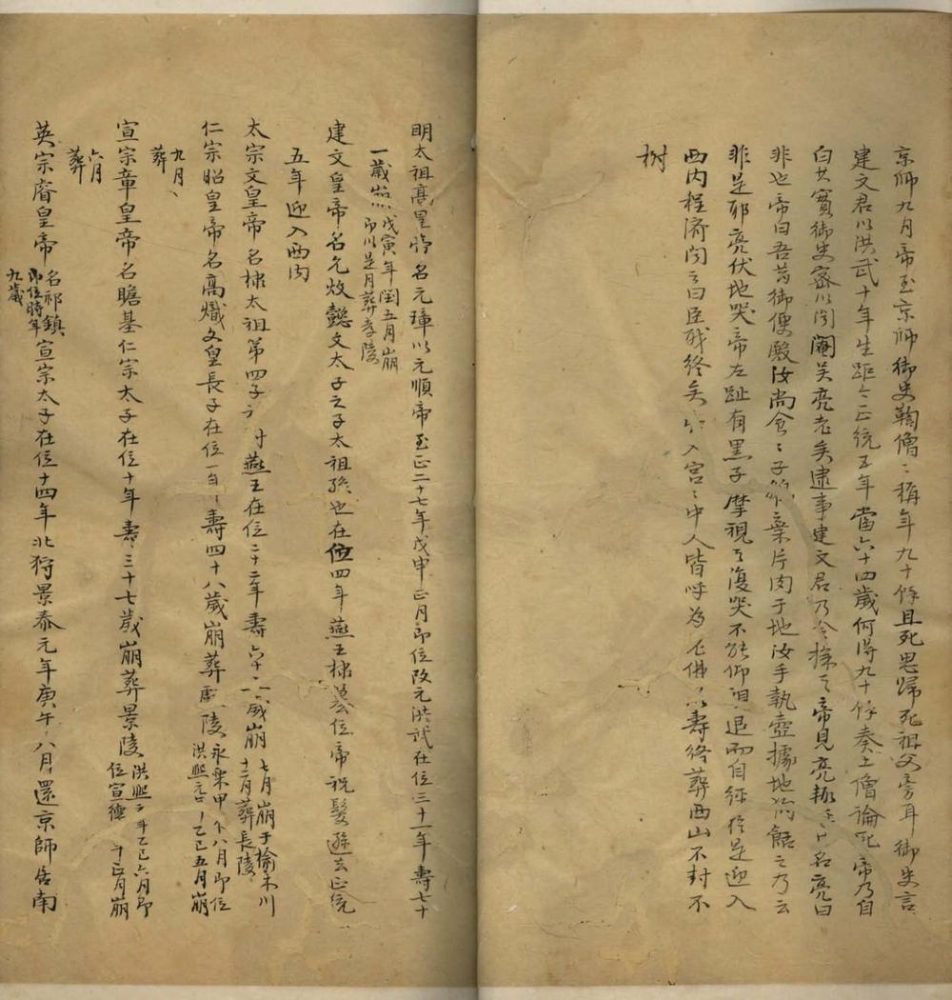 京師九月帝至京師御史鞫僧〻稱年九十餘且死思歸死祖父旁耳御史言
建文君以洪武十年生距今正統五年當六十四歲何得九十餘奏上僧論死帝乃自
白其實御史密以聞閹吴亮老矣逮事建文君乃令探之帝見亮輒曰名亮曰
非也帝曰吾昔御便殿汝尚食〻子鵞棄片肉于地汝手執壺據地狗餂之乃云
非是耶亮伏地哭帝左趾有黒子摩視之復哭不能仰視退而自經於是迎入
西内程濟聞之曰臣職終矣 入宫〻中人皆呼為老佛以壽終葬西山不封不
树
明太祖髙皇帝名元璋以元順帝至正二十七年戊申正月即位改元洪武在位三十一年壽七十
一歲崩 戊寅年閏五月崩 即以是月葬孝陵
建文皇帝名允炆懿文太子之子太祖孫也在位四年燕王棣簒位帝祝髮遜去正統
五年迎入西内
太宗文皇帝名棣太祖第四子 封燕王在位二十二年壽六十 歲崩 七月崩于榆木川 十二月葬長陵
仁宗昭皇帝名髙熾文皇長子在位一年壽四十八歲崩葬獻陵 永樂甲 八月即位 洪熙元 乙巳五月崩
九月葬
宣宗章皇帝名瞻基仁宗太子在位十年壽三十七歲崩葬景陵 洪熙元年乙巳六月即 位宣德 年正月崩
六月葬
英宗睿皇帝 名祁鎮 即位時年 九歲 宣宗太子在位十四年北狩景泰元年庚午八月還京師居南